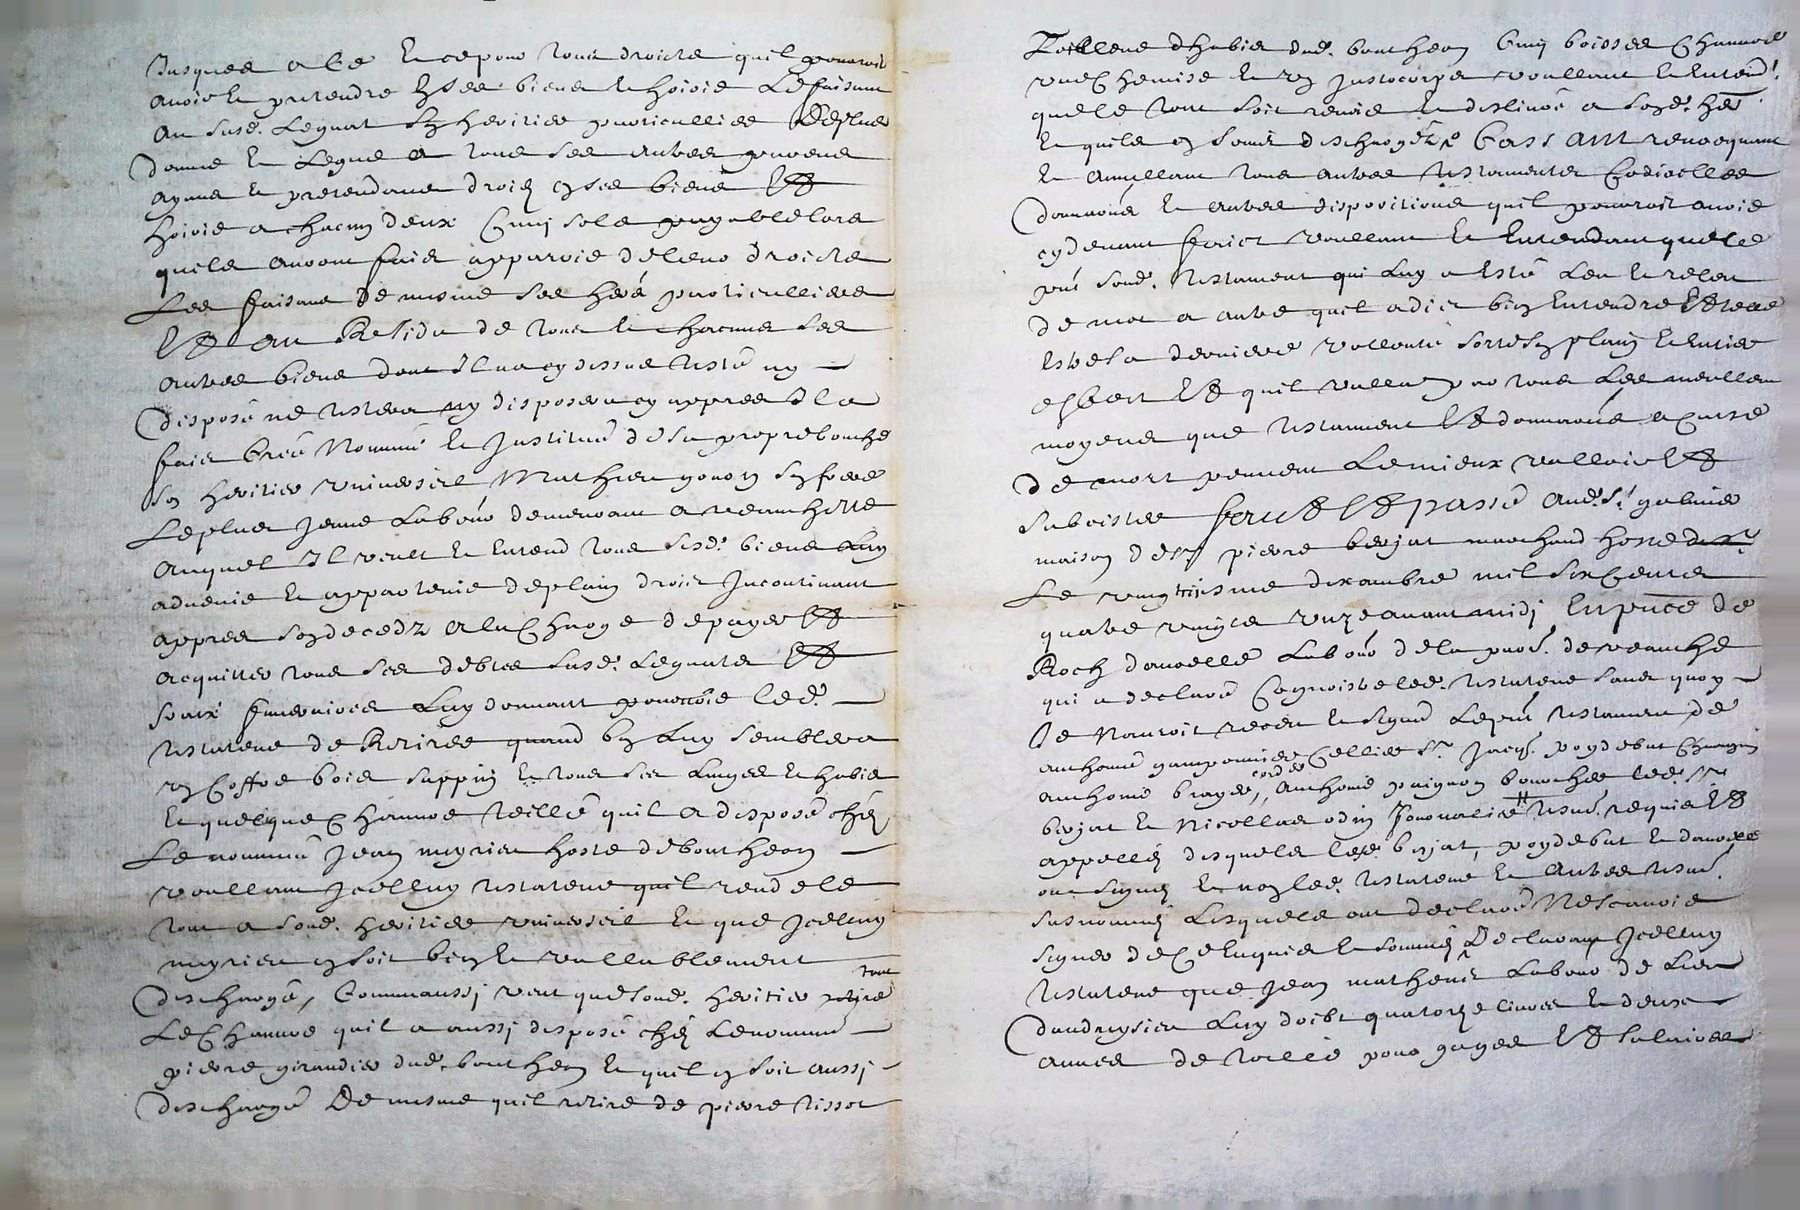 Jusques a ce Et ce pour tous droicts quil pouroit
avoir Et pretendre En ses biens Et hoirie Le faisant
au susd. Legnat Son heritier particullier De plus
donne Et Legue a tous ses autres parens
ayans Et pretendans droict En ses biens Et
hoirie a chacun deux Cinq sols payable lors
quils auront faict apparoir de leurs droicts
Les faisans de mesme ses hers particulliers
Et au Residu de tous Et chacuns ses
autres biens dont Il na cy dessus testé ny
disposé ne testera ny disposera cy appres Il a
faict Créé Nommé Et Institué de sa propre bouche
Son heritier universel Mathieu gonon Son frere
Le plus Jeune Labour demeurant a veauchette
Auquel Il veult Et Entend tous sesd. biens Luy
advenir Et appartenir de plain droict Incontinant
appres Son decedz a la Charge de payer Et
acquitter tous ses debtes susd. Legats Et
fraix funeraires Luy donnant pouvoir led.
testateur de Retirer quand bon Luy semblera
un Coffre bois sappin Et tous ses Linges Et habits
Et quelque Chanvre teillé quil a disposé chéz
Le nommé Jean meyrieu hoste de boutheon
voullant Jcelluy testateur quil rende le
tout a sond. heritier universel Et que Jcelluy
meyrieu En soit bien Et vallablement
deschargé, Comm aussi veut que sond. heritier retire tout
Le Chanvre quil a aussi disposé chéz Le nommé
pierre girandier dud. boutheon Et quil En soit aussi
deschargé De mesme quil retire de pierre tissot
tailleur dhabits dud. boutheon Cinq boisses Chanvre
une Chemise Et un Justocorps voullant Et Entend.
que le tout soit remis Et deslivré a sond. her
Et quils En soient deschargéz Cassant revoquant
Et annullant tous autres testaments Codicilles
donnaons Et autres dispositions quil pouroit avoir
cy devant faict voullant Et Entendant que le
pnt sond. testament qui Luy a Esté Leu Et releu
de mot a autre quil a dict bien Entendre Et telle
Estre sa derniere vollonté sorte Son plain Et Entier
effect Et quil valle par tous Les meilleurs
moyens que testament Et donnaons a cause
de mort peuvent Le mieux valloir Et
subcister faict Et passé aud. St. galmier
maison de Sr pierre berjat marchand hoste
Le vingtroisiesme dexambre mil six Cents
quatre vingts unze avant midi En pnce de
Roch damoelle Labour de la parr. de veauche
qui a declaré Cognoistre led. testateur sans quoy
Je Nauroit receu Et signé Le pnt testament de
anthoine gamponnier Cellier Sr Jacq. poydebat Chirurgien
anthoine brayer, anthoine paignon boucher led. Sr
berjat Et Nicollas odin Journalier tesms. requis Et
appellés desquels led. berjat, poydebat Et damoelle
ont signé Et non led. testateur Et autres tesms.
susnommés Lesquels ont declaré Ne scavoir
signer de Ce Enquis Et sommés Declarant Jcelluy
testateur que Jean matheus Labour de Lieu
dandreysieu Luy doibt quatorze Livres Et deux
aunes de toille pour gages Et salaires